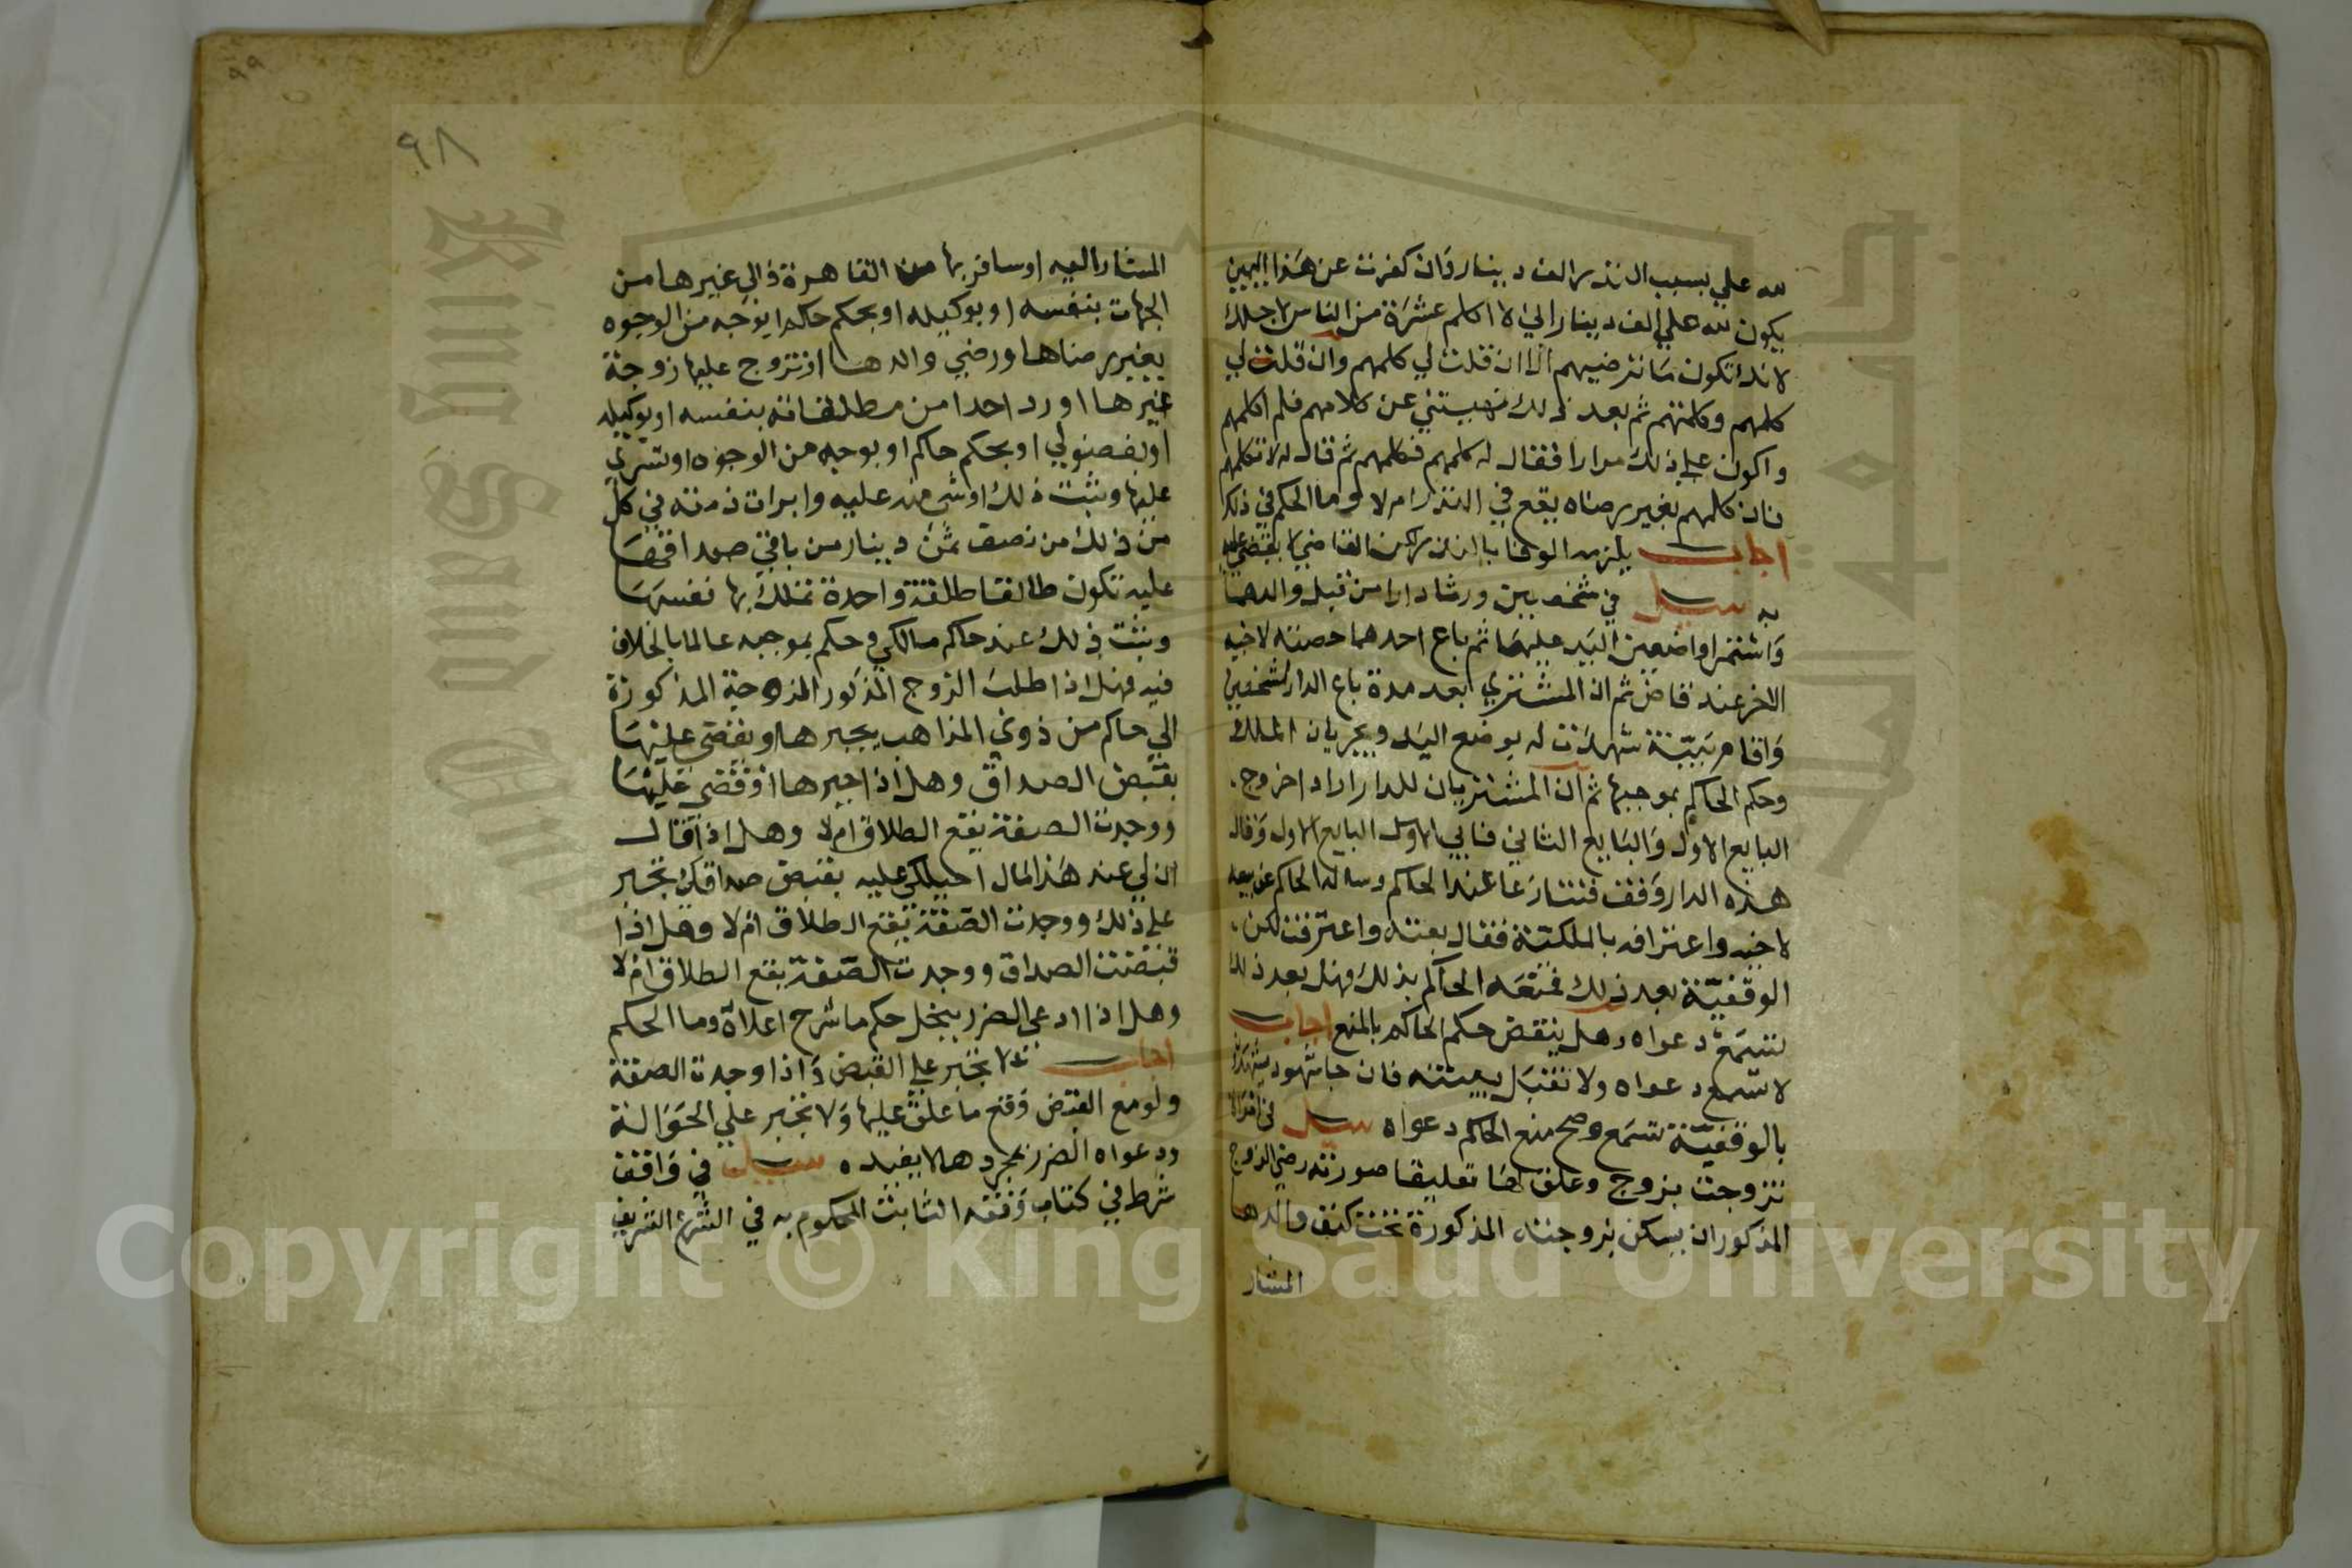 لله علي بسبب النذر الف دينار وان كفرت عن هذا اليمين
يكون لله علي الف دينار اني لا اكلم عشرة من الناس لاجلك
لانك تكون ما ترضيهم الا ان قلت لي كلمهم وان قلت لي
كلمهم وكلمتهم ثم بعد ذلك نهيتني عن كلامهم فلم اكلمهم
واكون علي ذلك مرارا فقال له كلمهم فكلمهم ثم قال له لا تكلمهم
فان كلمهم بغير رضاه يقع في النذر ام لا وما الحكم في ذلك
اجاب يلزمه الوفا بالنذر لكن القاضي لا يقضي عليه
به سيل في شخصين ورثا دارا من قبل والدهما
واستمرا واضعين اليد عليها ثم باع احدهما حصته لاخيه
الاخر عند قاض ثم ان المشتري بعد مدة باع الدار لشخصين
واقام ببينة شهدت له بوضع اليد وبجريان الملك
وحكم الحاكم بموجبها ثم ان المشتريان للدار ارادا خروج
البايع الاول والبايع الثاني فابي الاول البايع الاول وقال
هذه الدار وقف فتنازعا عند الحاكم وساله الحاكم عن بيعه
لاخيه واعترافه بالملكية فقال بعته واعترفت لكن
الوقفية بعد ذلك فمنعه الحاكم بذلك فهل بعد ذلك
تسمع دعواه وهل ينقض حكم الحاكم بالمنع اجاب
لا تسمع دعواه ولا تقبل بينته فان جا شهود يشهدوا
بالوقفية تسمع وصح منع الحاكم دعواه سيل في امراة
تزوجت بزوج وعلق لها تعليقا صورته رضي الزوج
المذكور ان يسكن بزوجته المذكورة تحت كنف والدها
المشار
٩٩
٩٨
المشار اليه او سافر بها من القاهرة الي غيرها من
الجهات بنفسه او بوكيله او بحكم حاكم او بوجه من الوجوه
بغير رضاها ورضي والدها او تزوج عليها زوجة
غيرها او رد احدا من مطلقاته بنفسه او بوكيله
او بفضولي او بحكم حاكم او بوجه من الوجوه او تسري
عليها وثبت ذلك او شي منه عليه وابرات ذمته في كل
من ذلك من نصف ثمن دينار من باقي صداقها
عليه تكون طالقا طلقة واحدة تملك بها نفسها
وثبت ذلك عند حاكم مالكي وحكم بموجبه عالما بالخلاف
فيه فهل اذا طلب الزوج المذكور الزوجة المذكورة
الي حاكم من ذوي المذاهب يجبرها ويقضي عليها
بقبض الصداق وهل اذا اجبرها او قضي عليها
ووجدت الصفة يقع الطلاق ام لا وهل اذا قال
الذي عند هذا المال احيلكي عليه بقبض صداقك تجبر
علي ذلك ووجدت الصفة يقع الطلاق ام لا وهل اذا
قبضت الصداق ووجدت الصفة يقع الطلاق ام لا
وهل اذا ادعي الضرر ينحل حكم ما شرح اعلاه وما الحكم
اجاب لا تجبر علي القبض واذا وجدت الصفة
ولو مع القبض وقع ما علق عليها ولا تجبر علي الحوالة
ودعواه الضرر بمجردها لا يفيده سيل في واقف
شرط في كتاب وقفه الثابت المحكوم به في الشرع الشريف
Copyright © King Saud University